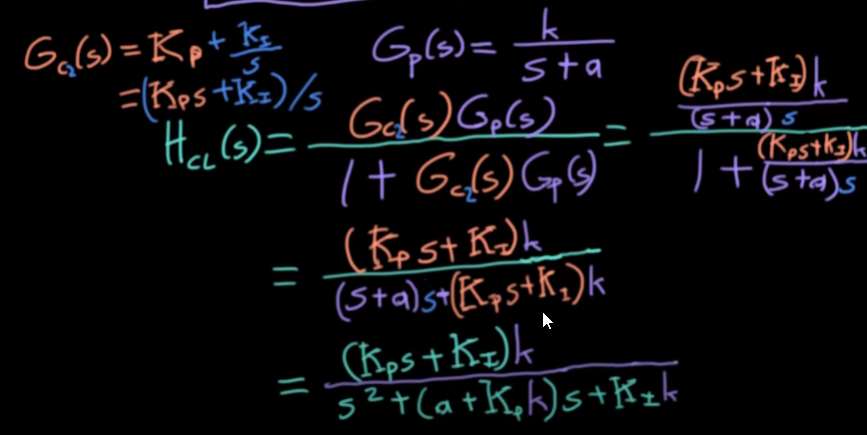 G_c2(s) = K_P + K_I/s
= (K_P s + K_I)/s
G_p(s) = k/(s+a)
H_CL(s) = G_c2(s)G_p(s)/(1 + G_c2(s)G_p(s)) = ((K_P s + K_I)k/((s+a)s))/(1 + (K_P s + K_I)k/((s+a)s))
= (K_P s + K_I)k/((s+a)s + (K_P s + K_I)k)
= (K_P s + K_I)k/(s² + (a + K_P k)s + K_I k)